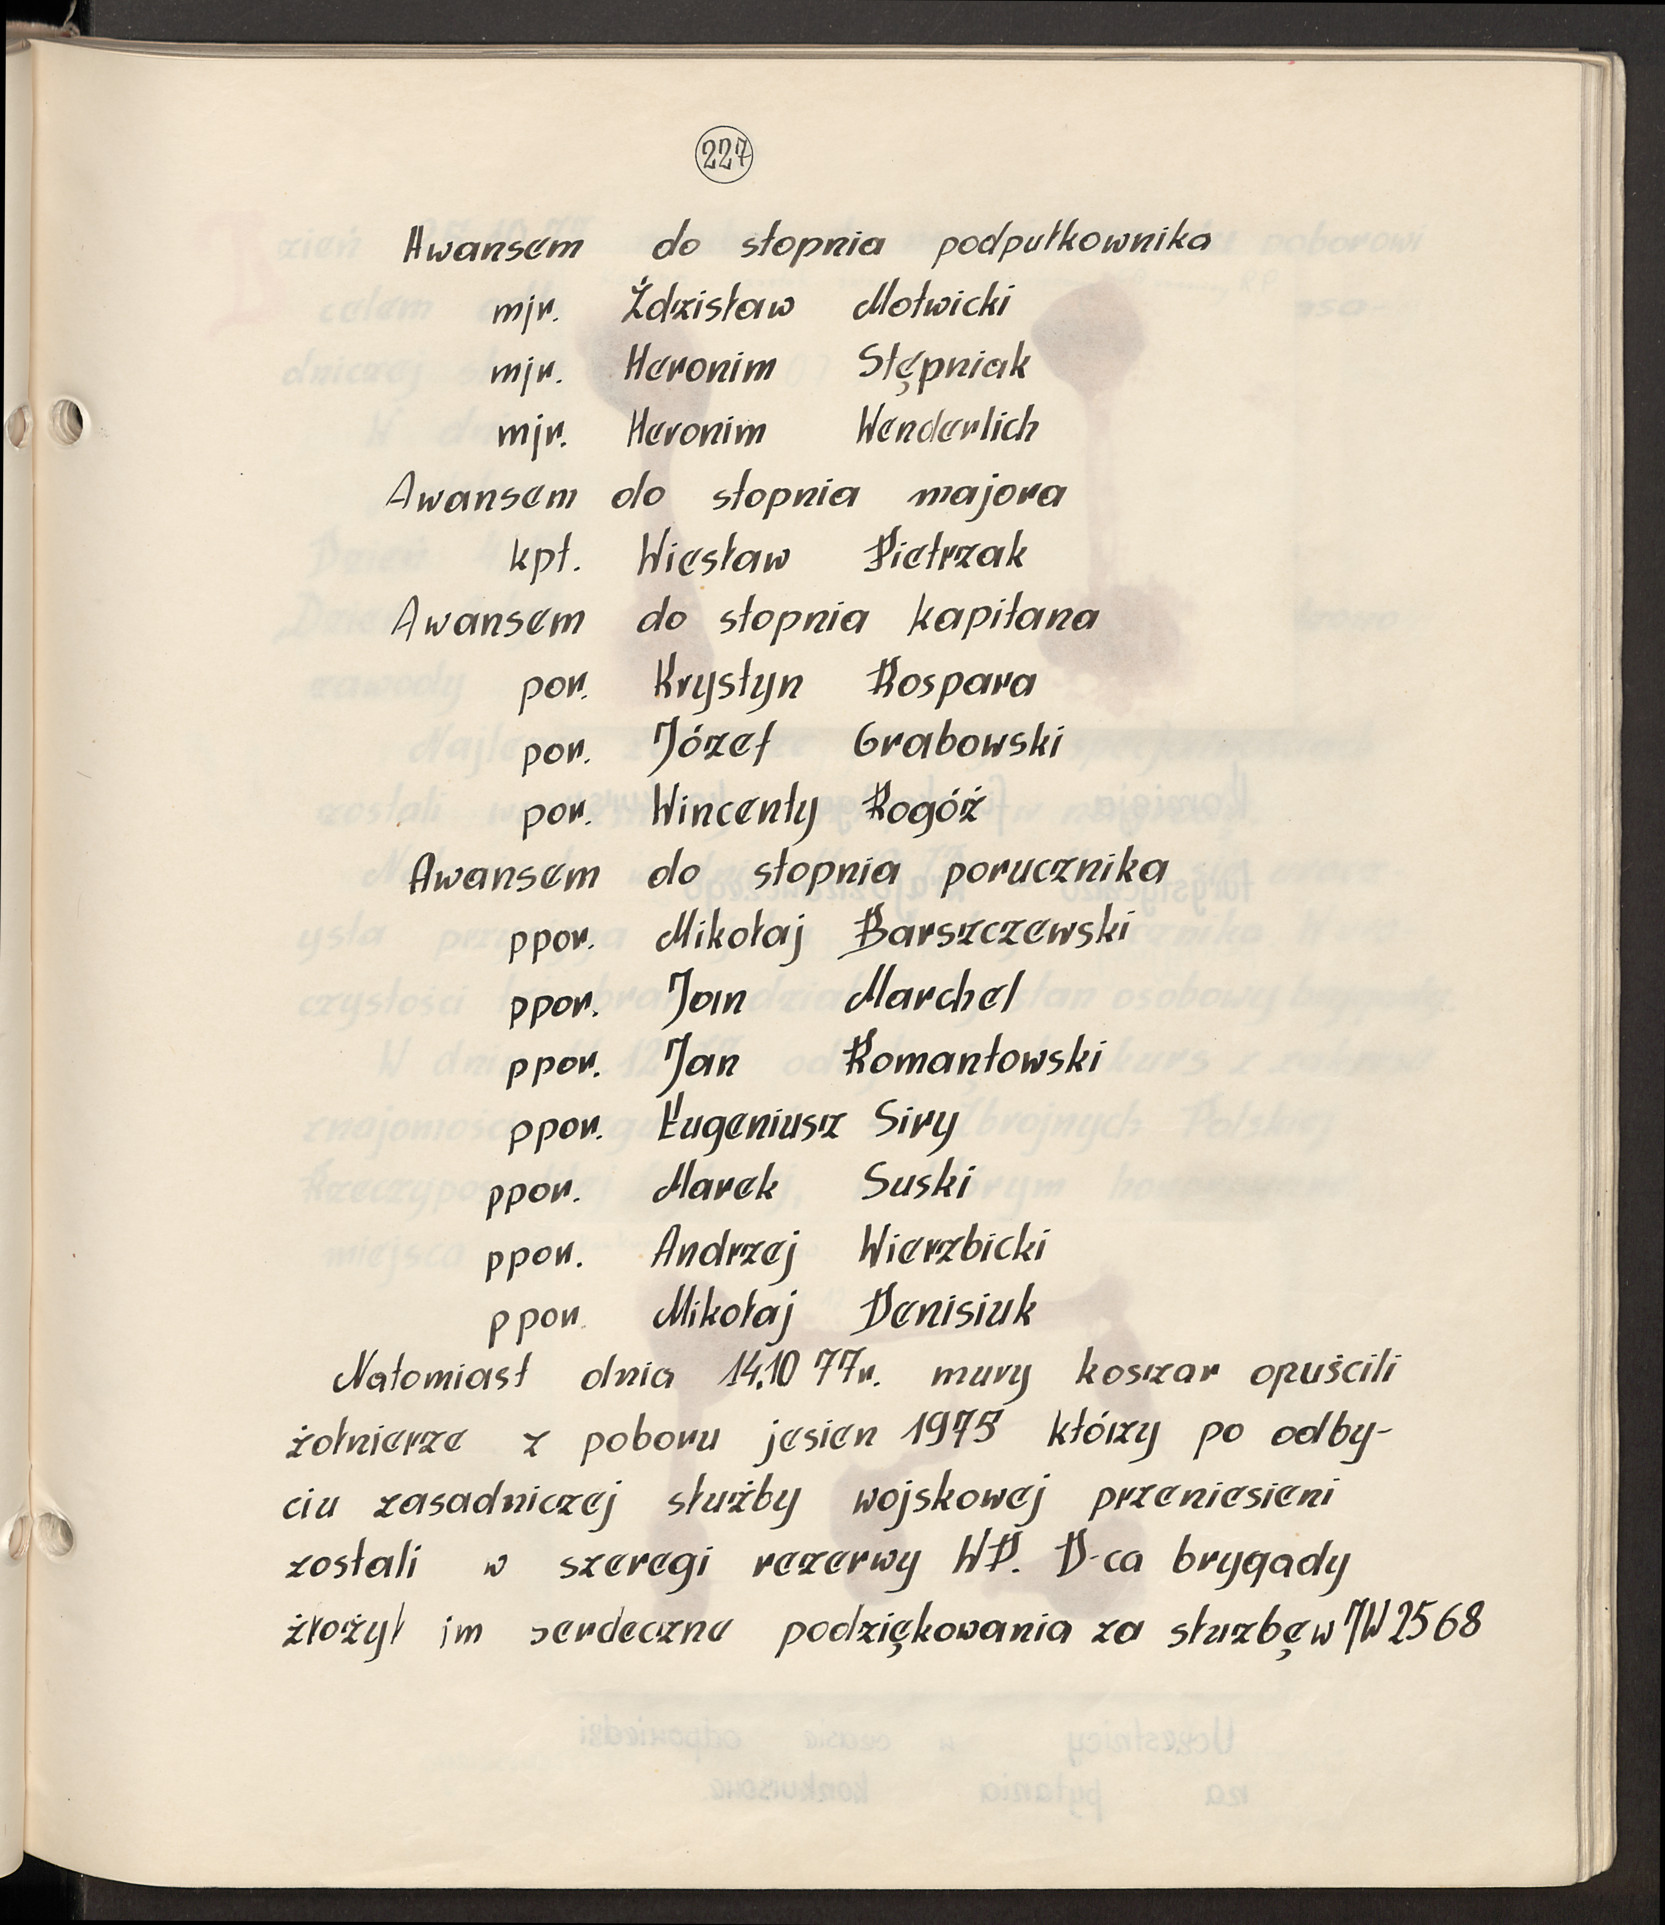 227
Awansem do stopnia podpułkownika
mjr. Żdzisław Motwicki
mjr. Heronim Stępniak
mjr. Heronim Wenderlich
Awansem do stopnia majora
kpt. Wiesław Pietrzak
Awansem do stopnia kapitana
por. Krystyn Rospara
por. Józef Grabowski
por. Wincenty Rogóź
Awansem do stopnia porucznika
ppor. Mikołaj Barszczewski
ppor. Jan Marchel
ppor. Jan Romantowski
ppor. Eugeniusz Siry
ppor. Marek Suski
ppor. Andrzej Wierzbicki
ppor. Mikołaj Denisiuk
Natomiast dnia 14.10 77r. mury koszar opuścili
żołnierze z poboru jesien 1975 którzy po odby-
ciu zasadniczej służby wojskowej przeniesieni
zostali w szeregi rezerwy WP. D-ca brygady
żłożył im serdeczne podziękowania za słuzbę w JW 2568